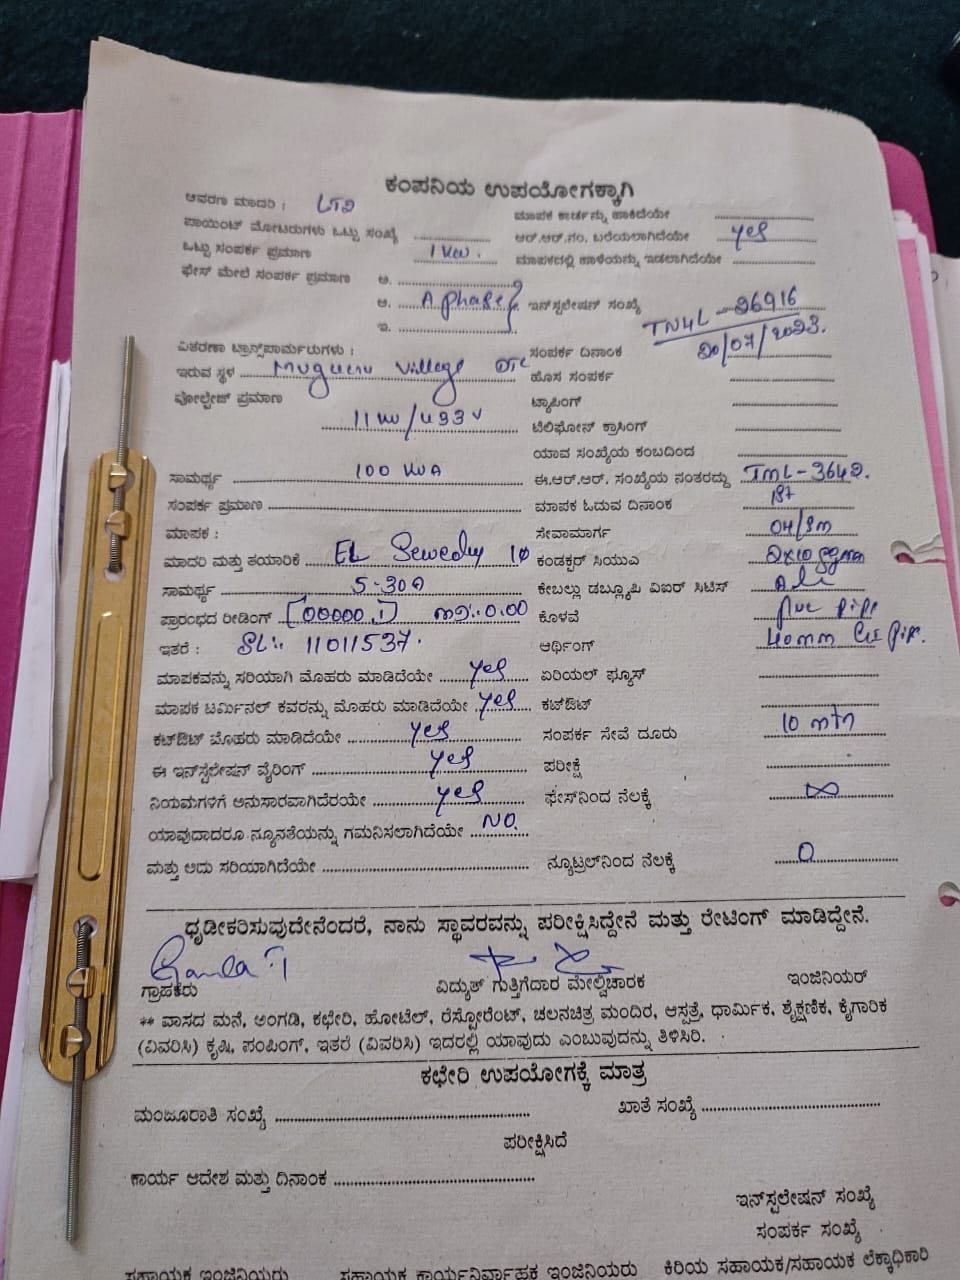 ಕಂಪನಿಯ ಉಪಯೋಗಕ್ಕಾಗಿ
ಆವರಣ ಮಾದರಿ : LT2 ಮಾಪಕ ಕಾರ್ಡನ್ನು ಹಾಕಿದೆಯೇ
ಪಾಯಿಂಟ್ ಮೋಟರುಗಳು ಒಟ್ಟು ಸಂಖ್ಯೆ ಆರ್.ಆರ್.ನಂ. ಬರೆಯಲಾಗಿದೆಯೇ yes
ಒಟ್ಟು ಸಂಪರ್ಕ ಪ್ರಮಾಣ 1 KW. ಮಾಪಕದಲ್ಲಿ ಹಾಳೆಯನ್ನು ಇಡಲಾಗಿದೆಯೇ
ಫೇಸ್ ಮೇಲೆ ಸಂಪರ್ಕ ಪ್ರಮಾಣ ಅ.
ಆ. A phase ಇನ್‌ಸ್ಟಲೇಷನ್ ಸಂಖ್ಯೆ TN4L-26916
ಇ. 20/07/2023.
ವಿತರಣಾ ಟ್ರಾನ್ಸ್‌ಪಾರ್ಮರುಗಳು : ಸಂಪರ್ಕ ದಿನಾಂಕ
ಇರುವ ಸ್ಥಳ village ಹೊಸ ಸಂಪರ್ಕ
ವೋಲ್ಟೇಜ್ ಪ್ರಮಾಣ ಟ್ಯಾಪಿಂಗ್
11 KV/433 V ಟೆಲಿಫೋನ್ ಕ್ರಾಸಿಂಗ್
ಯಾವ ಸಂಖ್ಯೆಯ ಕಂಬದಿಂದ
ಸಾಮರ್ಥ್ಯ 100 KVA ಈ.ಆರ್.ಆರ್. ಸಂಖ್ಯೆಯ ನಂತರದ್ದು TML-3642.
ಸಂಪರ್ಕ ಪ್ರಮಾಣ ಮಾಪಕ ಓದುವ ದಿನಾಂಕ 1st
ಮಾಪಕ : ಸೇವಾಮಾರ್ಗ 04/sm
ಮಾದರಿ ಮತ್ತು ತಯಾರಿಕೆ EL Sewedy 1Ø ಕಂಡಕ್ಟರ್ ಸಿಯುಎ 2x10 sqmm
ಸಾಮರ್ಥ್ಯ 5-30A ಕೇಬಲ್ಲು ಡಬ್ಲ್ಯೂಪಿ ವಿಐರ್ ಸಿಟಿಸ್ Ali
ಪ್ರಾರಂಭದ ರೀಡಿಂಗ್ [00000.1] 0.00 ಕೊಳವೆ pvc pipe
ಇತರೆ : SL:- 11011537. ಆರ್ಥಿಂಗ್ 40mm GI pip.
ಮಾಪಕವನ್ನು ಸರಿಯಾಗಿ ಮೊಹರು ಮಾಡಿದೆಯೇ yes ಏರಿಯಲ್ ಫ್ಯೂಸ್
ಮಾಪಕ ಟರ್ಮಿನಲ್ ಕವರನ್ನು ಮೊಹರು ಮಾಡಿದೆಯೇ yes ಕಟ್‌ಔಟ್
ಕಟ್‌ಔಟ್ ಮೊಹರು ಮಾಡಿದೆಯೇ yes ಸಂಪರ್ಕ ಸೇವೆ ದೂರು 10 mtr
ಈ ಇನ್‌ಸ್ಟಲೇಷನ್ ವೈರಿಂಗ್ yes ಪರೀಕ್ಷೆ
ನಿಯಮಗಳಿಗೆ ಅನುಸಾರವಾಗಿದೆರಯೇ yes ಫೇಸ್‌ನಿಂದ ನೆಲಕ್ಕೆ ∞
ಯಾವುದಾದರೂ ನ್ಯೂನತೆಯನ್ನು ಗಮನಿಸಲಾಗಿದೆಯೇ NO.
ಮತ್ತು ಅದು ಸರಿಯಾಗಿದೆಯೇ ನ್ಯೂಟ್ರಲ್‌ನಿಂದ ನೆಲಕ್ಕೆ 0
ಧೃಡೀಕರಿಸುವುದೇನೆಂದರೆ, ನಾನು ಸ್ಥಾವರವನ್ನು ಪರೀಕ್ಷಿಸಿದ್ದೇನೆ ಮತ್ತು ರೇಟಿಂಗ್ ಮಾಡಿದ್ದೇನೆ.
ಗ್ರಾಹಕರು ವಿದ್ಯುತ್ ಗುತ್ತಿಗೆದಾರ ಮೇಲ್ವಿಚಾರಕ ಇಂಜಿನಿಯರ್
** ವಾಸದ ಮನೆ, ಅಂಗಡಿ, ಕಛೇರಿ, ಹೋಟೆಲ್, ರೆಸ್ಟೋರೆಂಟ್, ಚಲನಚಿತ್ರ ಮಂದಿರ, ಆಸ್ಪತ್ರೆ, ಧಾರ್ಮಿಕ, ಶೈಕ್ಷಣಿಕ, ಕೈಗಾರಿಕ
(ವಿವರಿಸಿ) ಕೃಷಿ, ಪಂಪಿಂಗ್, ಇತರೆ (ವಿವರಿಸಿ) ಇದರಲ್ಲಿ ಯಾವುದು ಎಂಬುವುದನ್ನು ತಿಳಿಸಿರಿ.
ಕಛೇರಿ ಉಪಯೋಗಕ್ಕೆ ಮಾತ್ರ
ಮಂಜೂರಾತಿ ಸಂಖ್ಯೆ ಖಾತೆ ಸಂಖ್ಯೆ
ಪರೀಕ್ಷಿಸಿದೆ
ಕಾರ್ಯ ಆದೇಶ ಮತ್ತು ದಿನಾಂಕ
ಇನ್‌ಸ್ಪಲೇಷನ್ ಸಂಖ್ಯೆ
ಸಂಪರ್ಕ ಸಂಖ್ಯೆ
ಸಹಾಯಕ ಇಂಜಿನಿಯರು ಸಹಾಯಕ ಕಾರ್ಯನಿರ್ವಾಹಕ ಇಂಜಿನಿಯರು ಕಿರಿಯ ಸಹಾಯಕ/ಸಹಾಯಕ ಲೆಕ್ಕಾಧಿಕಾರಿ